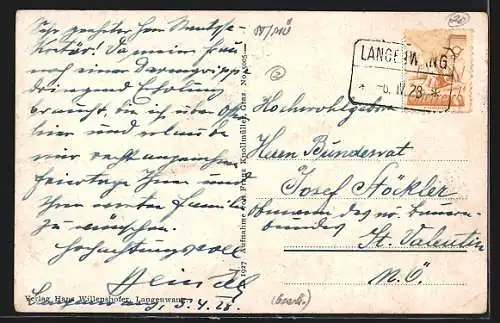 Sehr geehrter Herr Bundesse-
kretär! Da meine Frau
nach einer Darmgrippe
dringend Erholung
braucht, bin ich über
hier und erlaube
mir recht angenehme
Feiertage Ihnen und
Ihrer werten Familie
zu wünschen.
Hochachtungsvoll
Langenwang, 5.4.28.
Verlag Hans Willenshofer, Langenwang
1927 Aufnahme von Franz Knollmüller, Graz No. 5005
LANGENWANG
* -6. IV. 28. *
Hochwohlgeboren
Herrn Bundesrat
Josef Stöckler
Obmann des nö. Bauern-
bundes
St. Valentin
N.Ö.
20